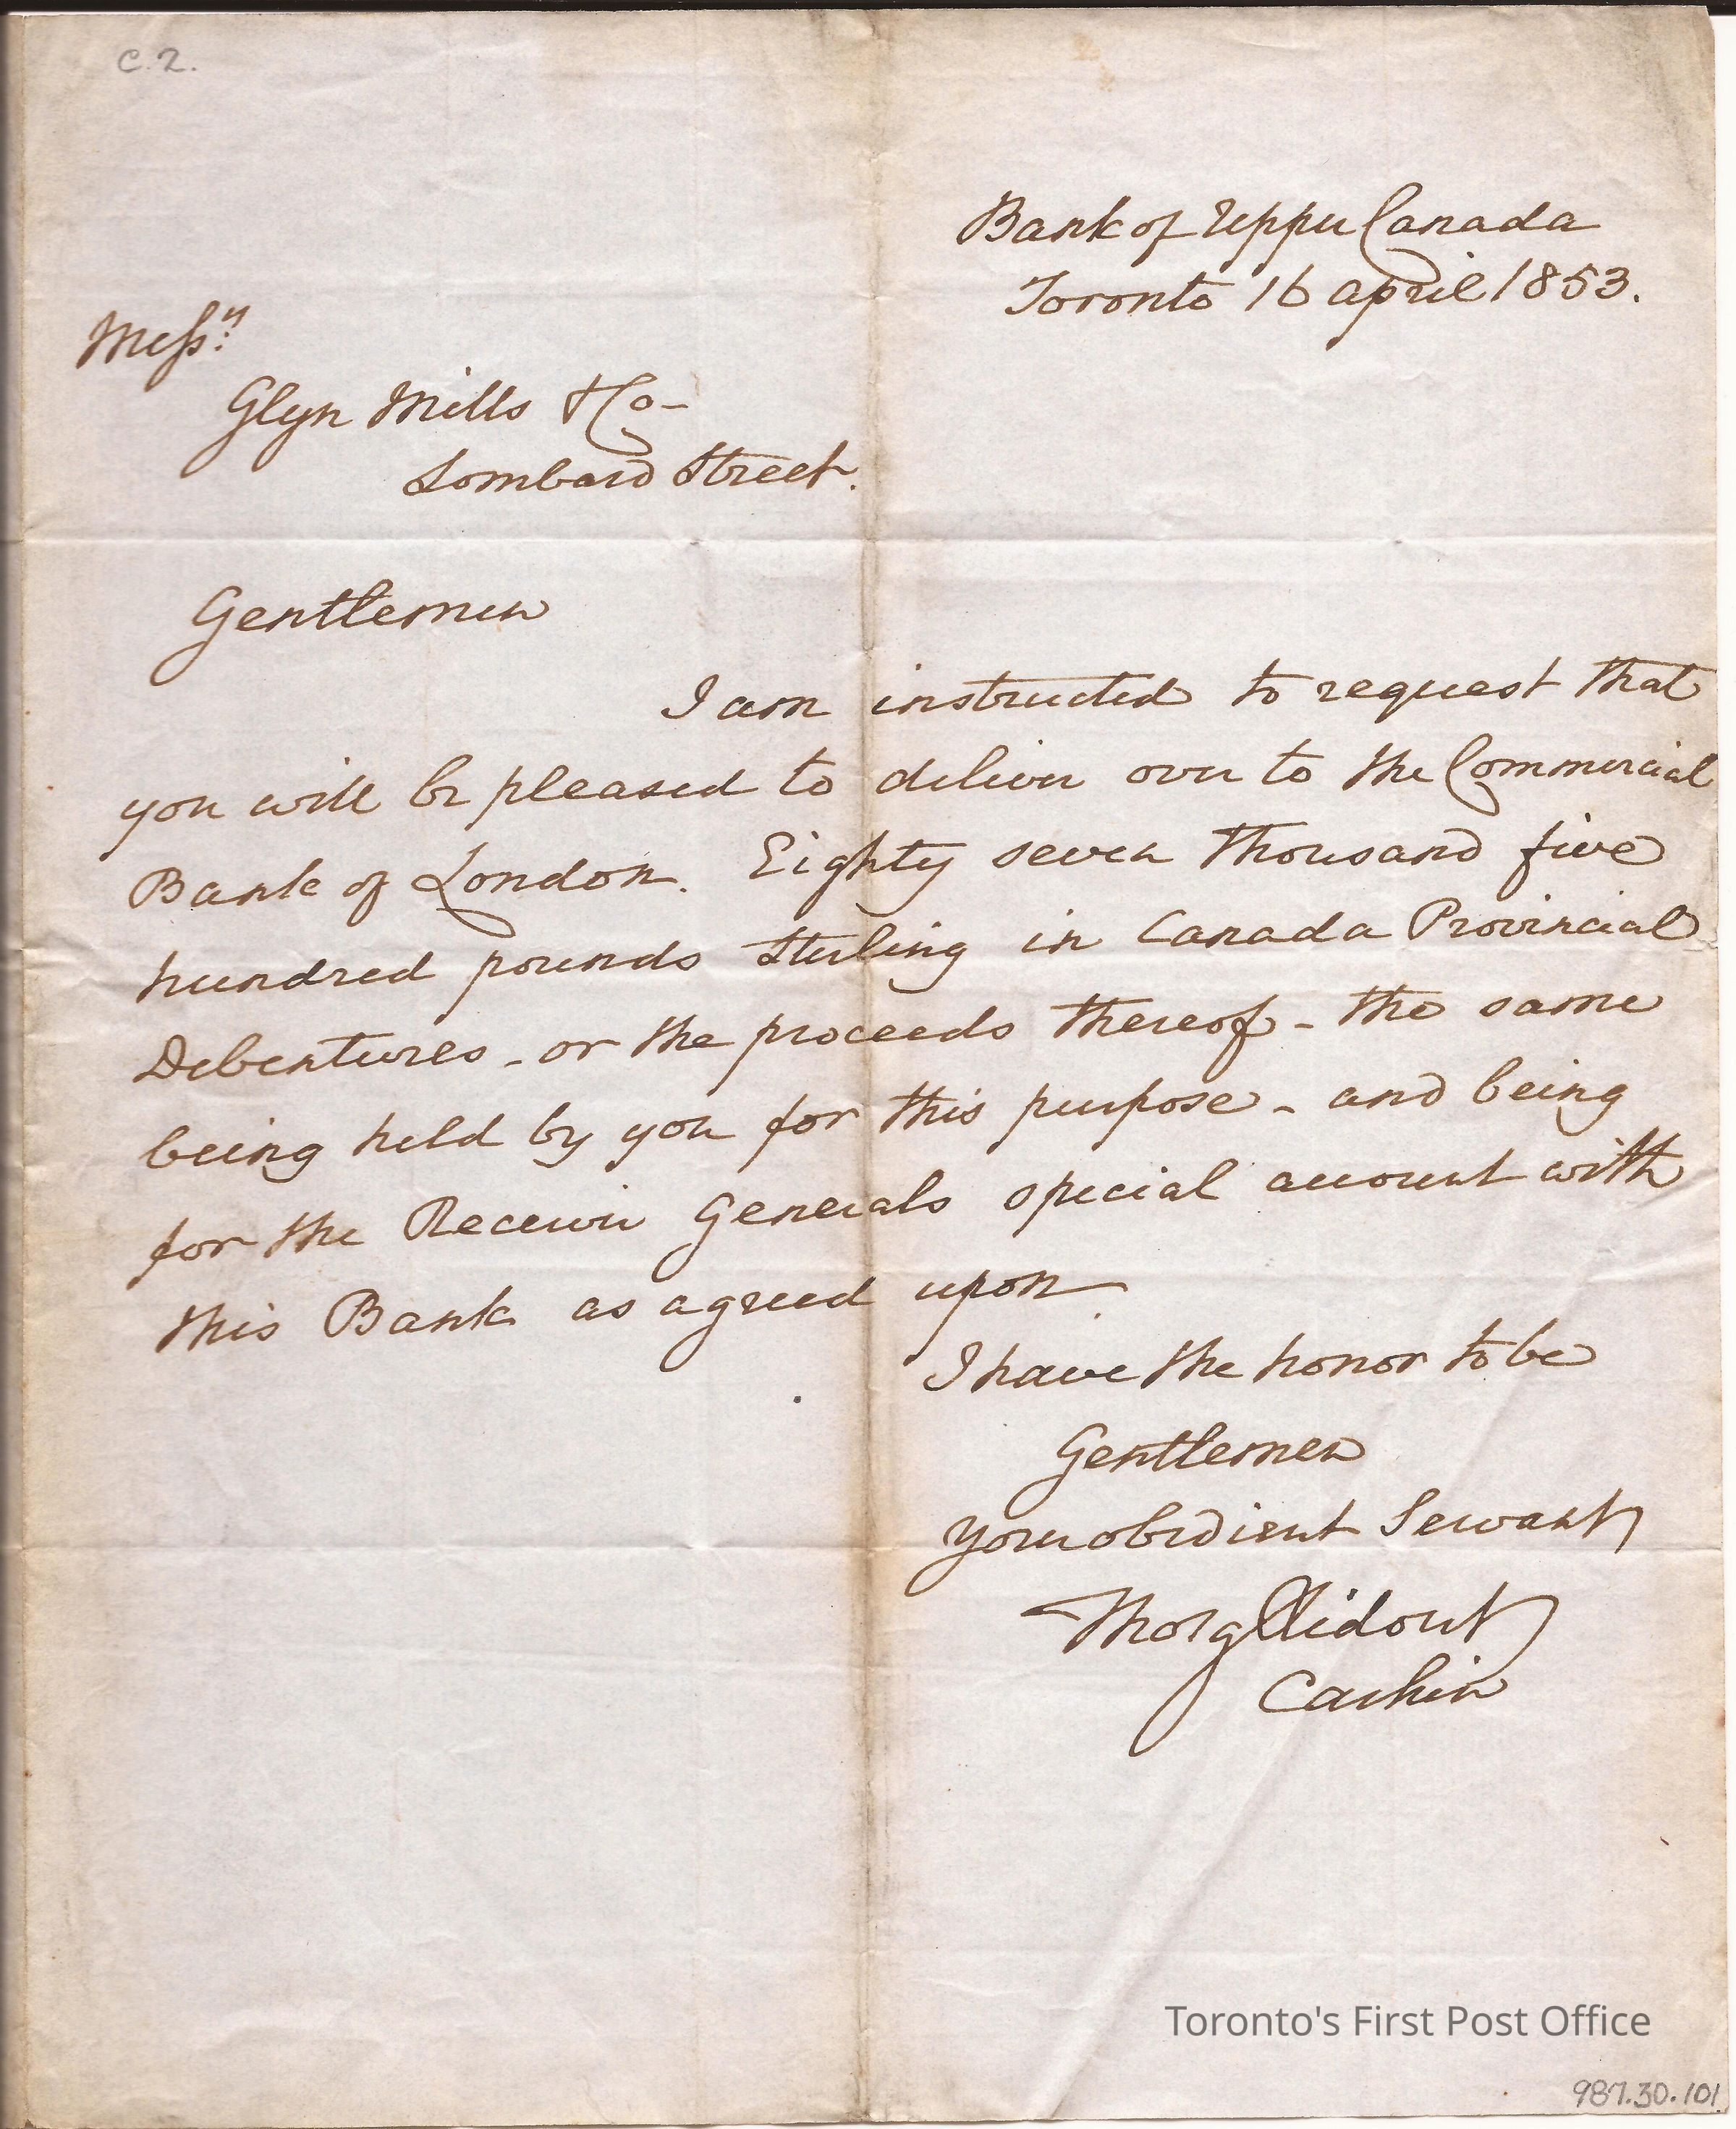 C.2.
Bank of Upper Canada
Toronto 16 april 1853.
Messrs
Glyn Mills & Co-
Lombard Street.
Gentlemen
I am instructed to request that
you will be pleased to deliver over to the Commercial
Bank of London. Eighty seven thousand five
hundred pounds Sterling in Canada Provincial
Debentures - or the proceeds thereof - the same
being held by you for this purpose - and being
for the Receiver Generals special account with
this Bank as agreed upon
I have the honor to be
Gentlemen
Your obedient Servant
Thos G Ridout
Cashier
Toronto's First Post Office
987.30.101